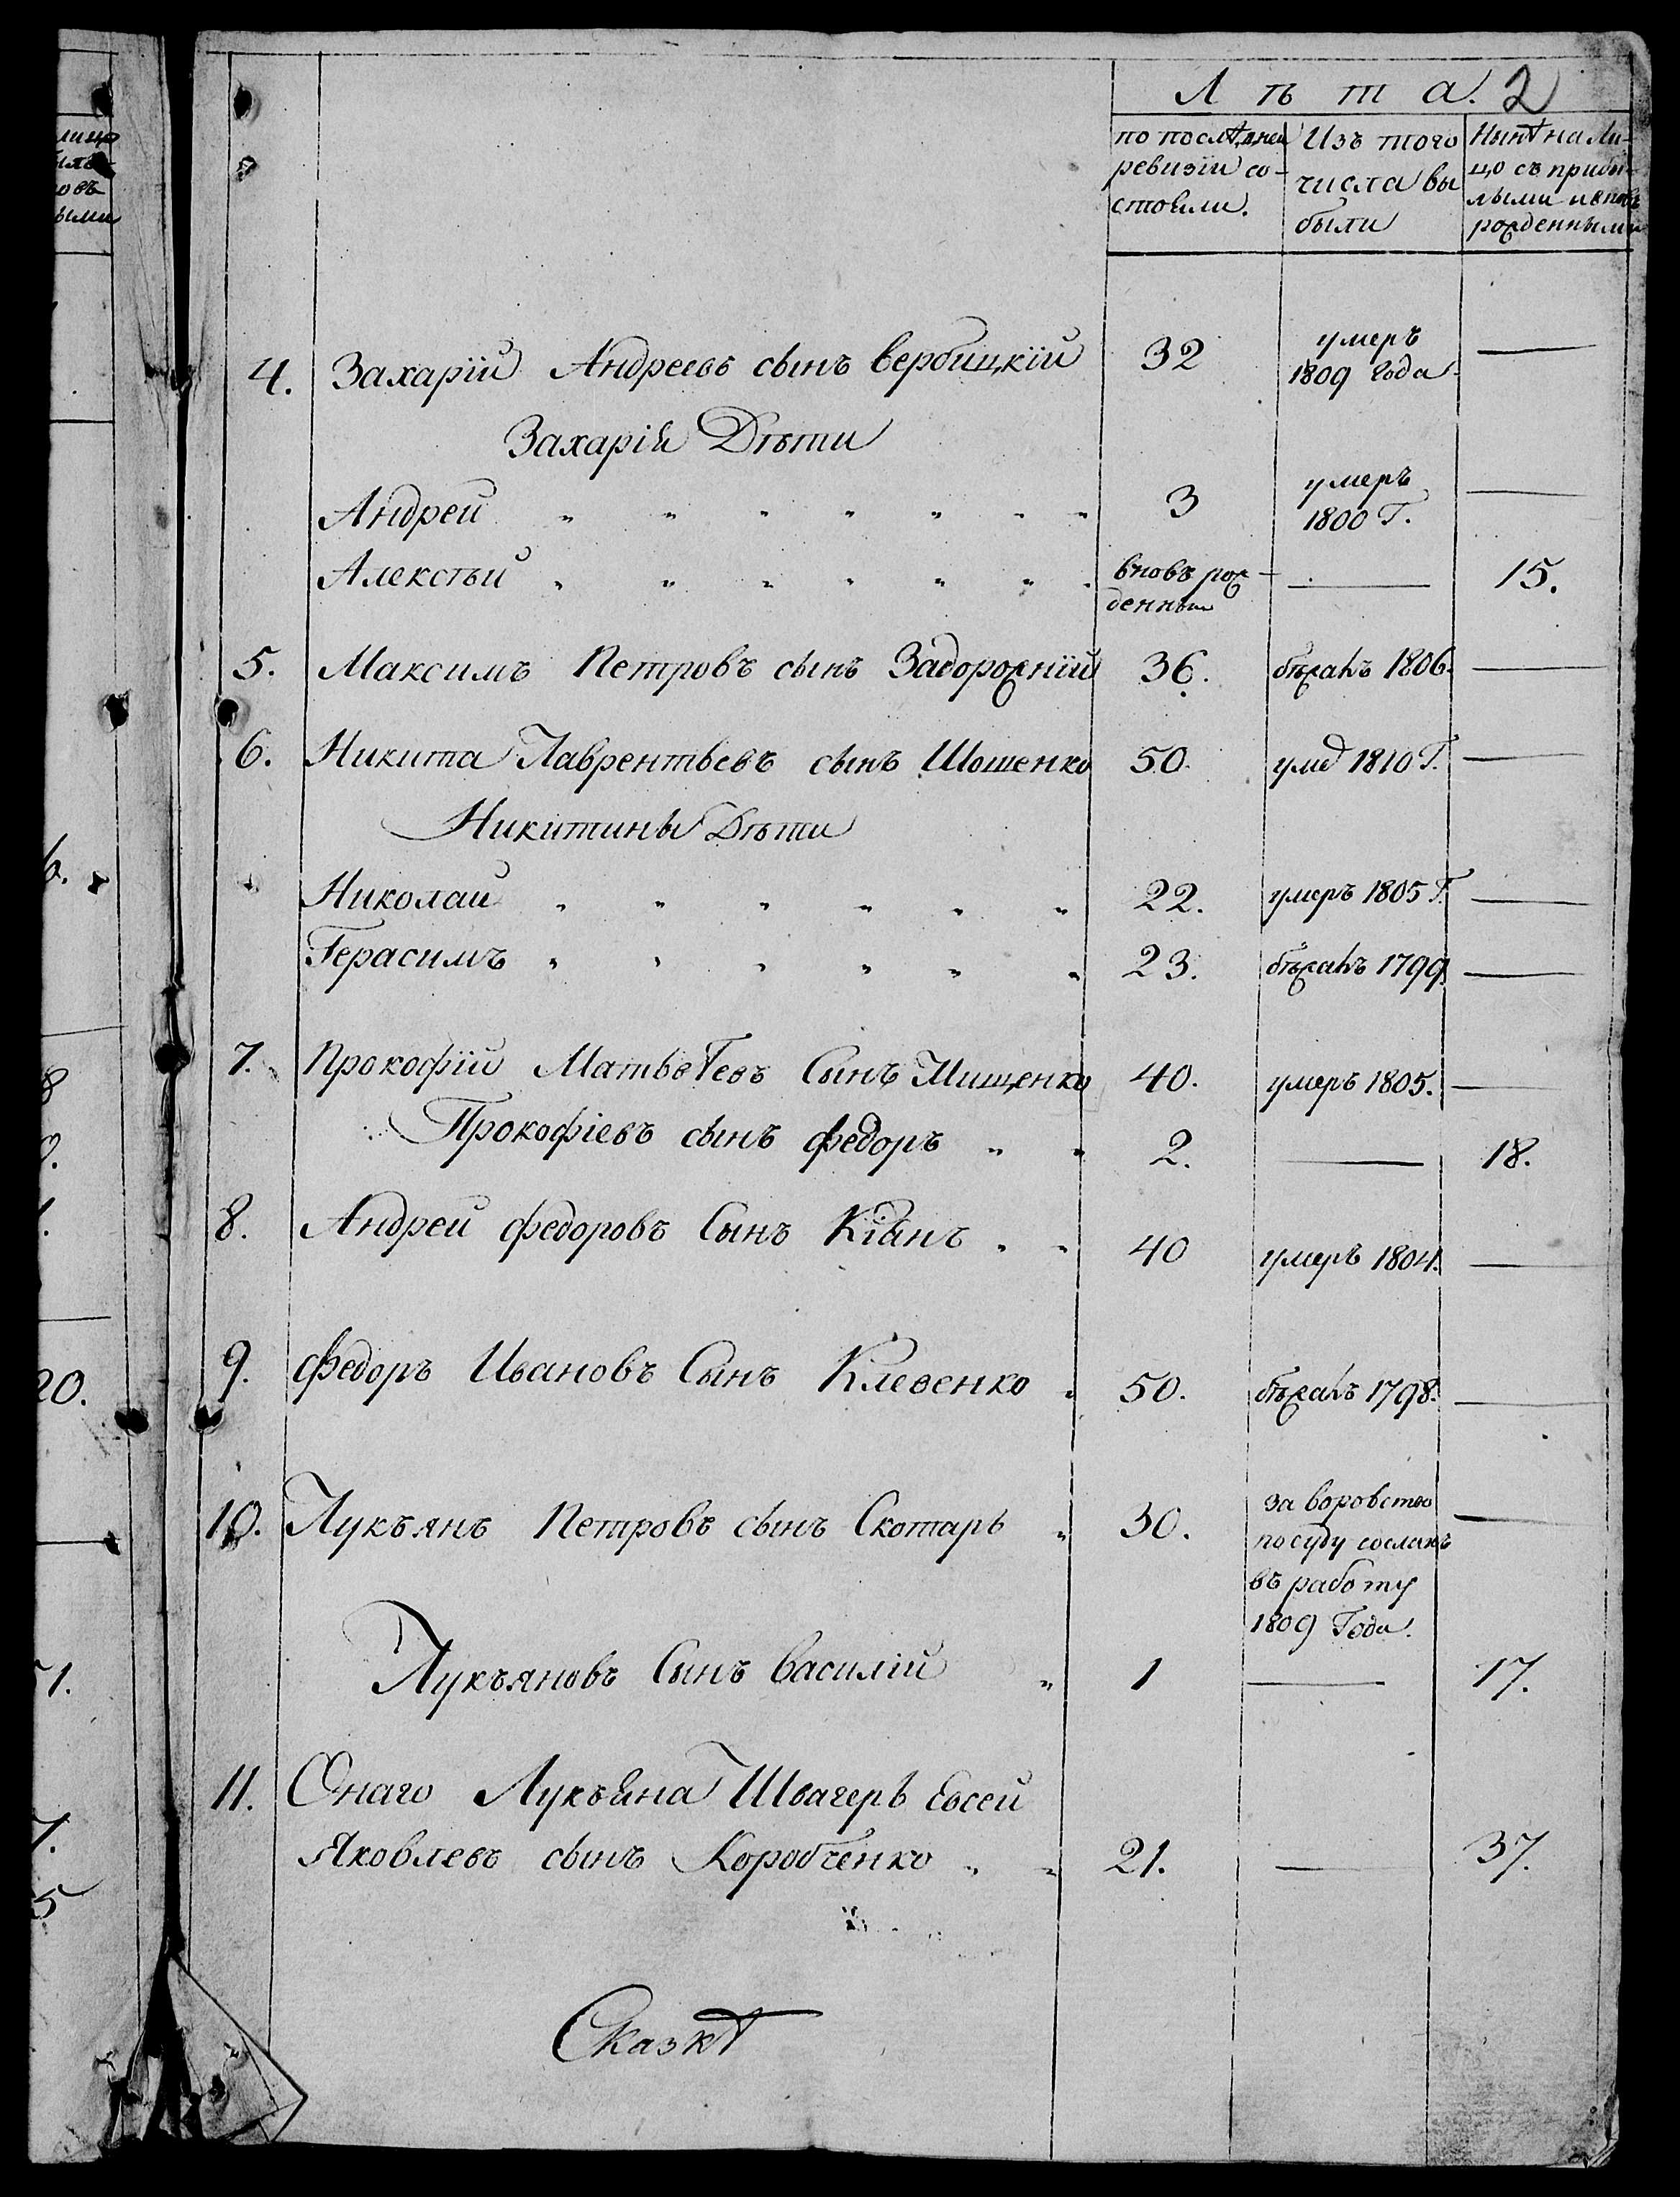 Лѣта. 2
по послѣдней ревизіи состояли.
Изъ того числа выбыли
Нынѣ на лицо съ прибылыми и вновь рожденными
4. Захарій Андреевъ сынъ Вербицкій 32 умеръ 1809 Года —
Захарія Дѣти
Андрей " " " " " " " 3 умеръ 1800 Г. —
Алексѣй " " " " " " " вновь рожденный — 15.
5. Максимъ Петровъ сынъ Задорожній 36. бѣжалъ 1806. —
6. Никита Лаврентьевъ сынъ Шошенко 50. 1810 Г. —
Никитины Дѣти
Николай " " " " " " 22. умеръ 1805 Г. —
Герасимъ " " " " " " 23. бѣжалъ 1799. —
7. Прокофій Матвѣевъ Сынъ Мищенко 40. умеръ 1805. —
Прокофіевъ сынъ Федоръ " " 2. — 18.
8. Андрей Федоровъ Сынъ Кіянъ " " 40 умеръ 1804. —
9. Федоръ Ивановъ Сынъ Клевенко " 50. бѣжалъ 1798. —
10. Лукъянъ Петровъ сынъ Скотарь " 30. за воровство —
по суду сосланъ
въ работу
1809 Года.
Лукъяновъ Сынъ Василій " 1 — 17.
11. Онаго Лукъяна Швагеръ Евсей
Яковлевъ сынъ Коробченко " " 21. — 37.
Сказкѣ
лицо
ыми
6.
8
20.
1.
7.
5